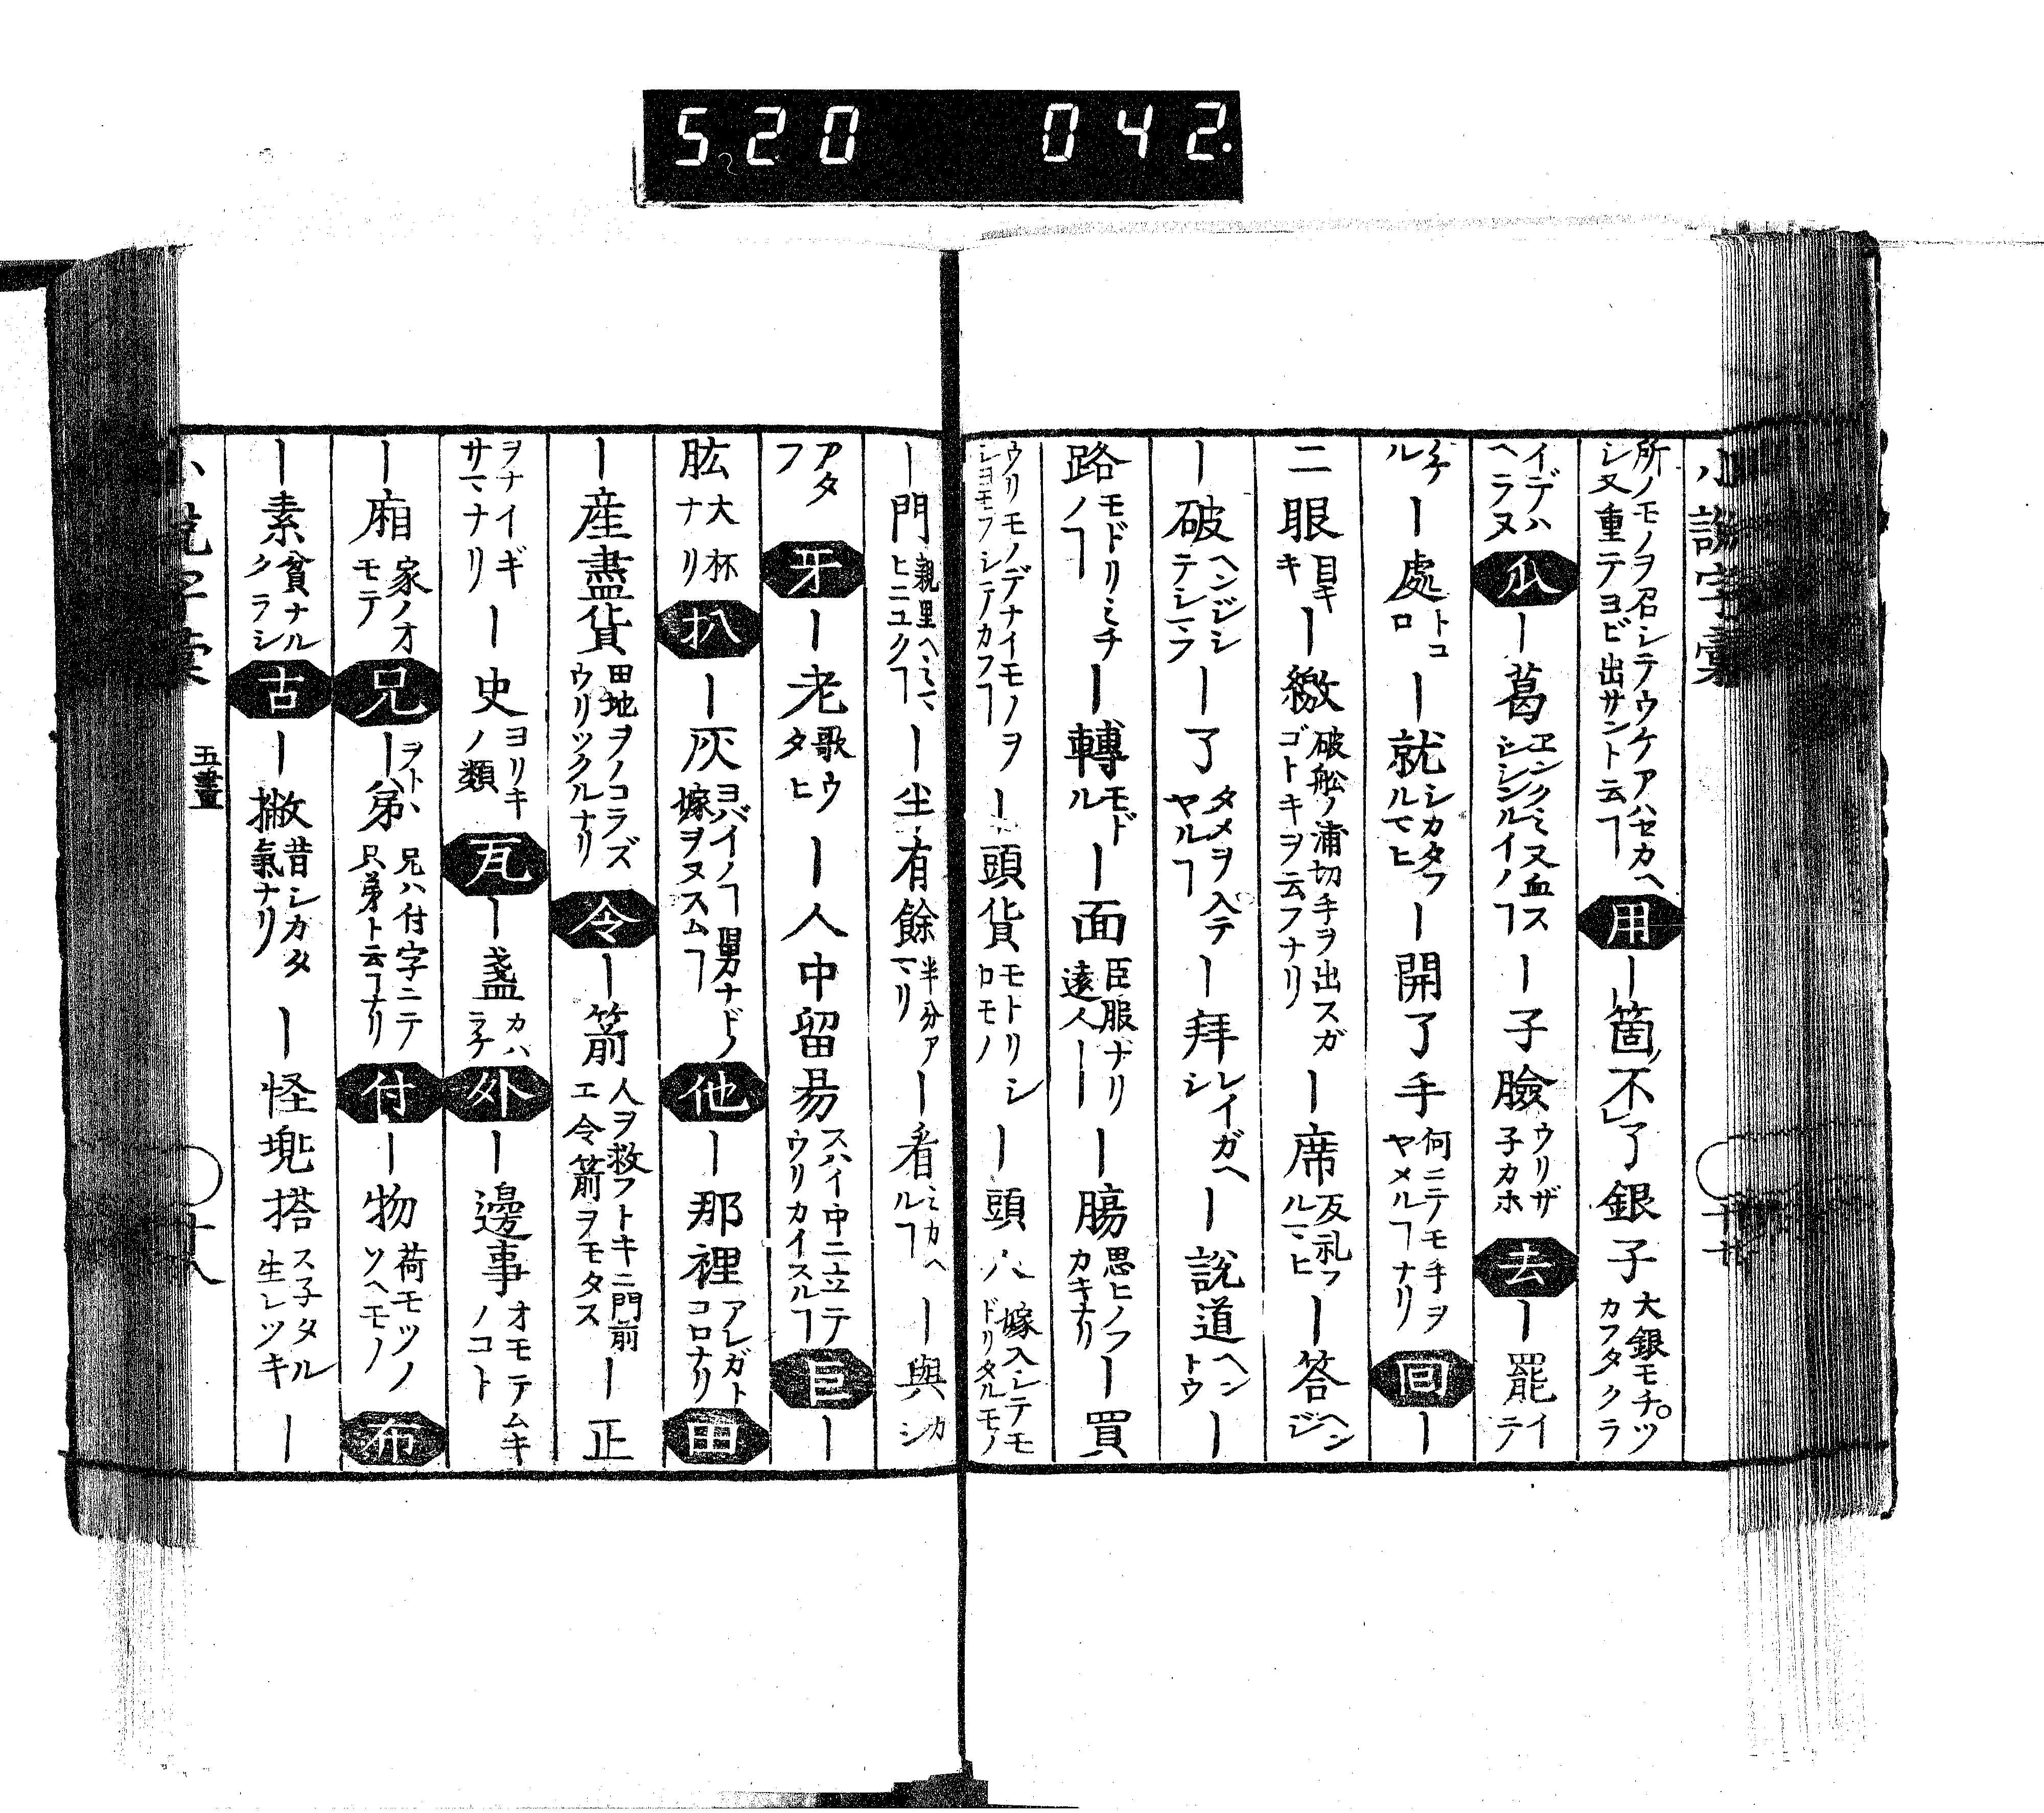 520 042.
小說字彙
所ノモノヲ召シテウケアハセカヘシ又重テヨビ出サントヿ云ヿ 用 ー箇不了銀子 大銀モチツカフタクラ
イデハヘラヌ 瓜 ー葛 ヱンクミ又血スジシンルイノヿ ー子臉 ウリザ子カホ 去 ー罷 イテ
ル ー處 トコロ ー就 シカタフルマヒ ー開了手 何ニテモ手ヲヤメルヿナリ 回 ー
二眼 目キキ ー繳 破舩ノ浦切手ヲ出スガゴトキヲ云フナリ ー席 反礼フルマヒ ー答 ヘンジ
ー破 ヘンジシテシマフ ー了 タメヲ入テヤルヿ ー拜 レイガヘシ ー說道 ヘントウ ー
路 モドリミチノヿ ー轉 モドル ー面 臣服ナリ遠人ーー ー腸 思ヒノフカキナリ ー買
ウリモノデナイモノヲシヨモフシテカフヿ ー頭貨 モトリシロモノ ー頭人 嫁入シテモドリタルモノ
ー門 親里ヘミマヒニユクヿ ー坐有餘 半分アマリ ー看 ミカヘルヿ ー與 カシ
アタフ 牙 ー老 歌ウタヒ ー人中留易 スハイ中ニ立テウリカイスルヿ 巨 ー
肱 大杯ナリ 扒 ー灰 ヨバイノヿ舅ナドノ嫁ヲヌスムヿ 他 ー那裡 アレガトコロナリ 田
ー産盡貨 田地ヲノコラズウリツクルナリ 令 ー箭 人ヲ救フトキニ門前エ令箭ヲモタス ー正
ヲナイギサマナリ ー史 ヨリキノ類 瓦 ー盞 カハラ子 外 ー邊事 オモテムキノコト
ー廂 家ノオモテ 兄 ー弟 ヲトヽ 兄ハ付字ニテ只弟ト云ヿナリ 付 ー物 荷モツノソヘモノ 布
ー素 貧ナルクラシ 古 ー撇 昔シカタ氣ナリ ー怪堍搭 ス子タル生レツキ ー
小說字彙 五畫